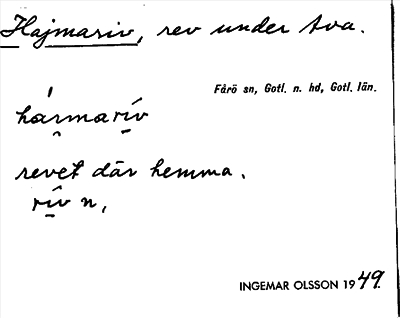 Hajmariv, rev under Ava.
Fårö sn, Gotl. n. hd, Gotl. län.
hármarív
revet där hemma.
rív n,
INGEMAR OLSSON 1949.